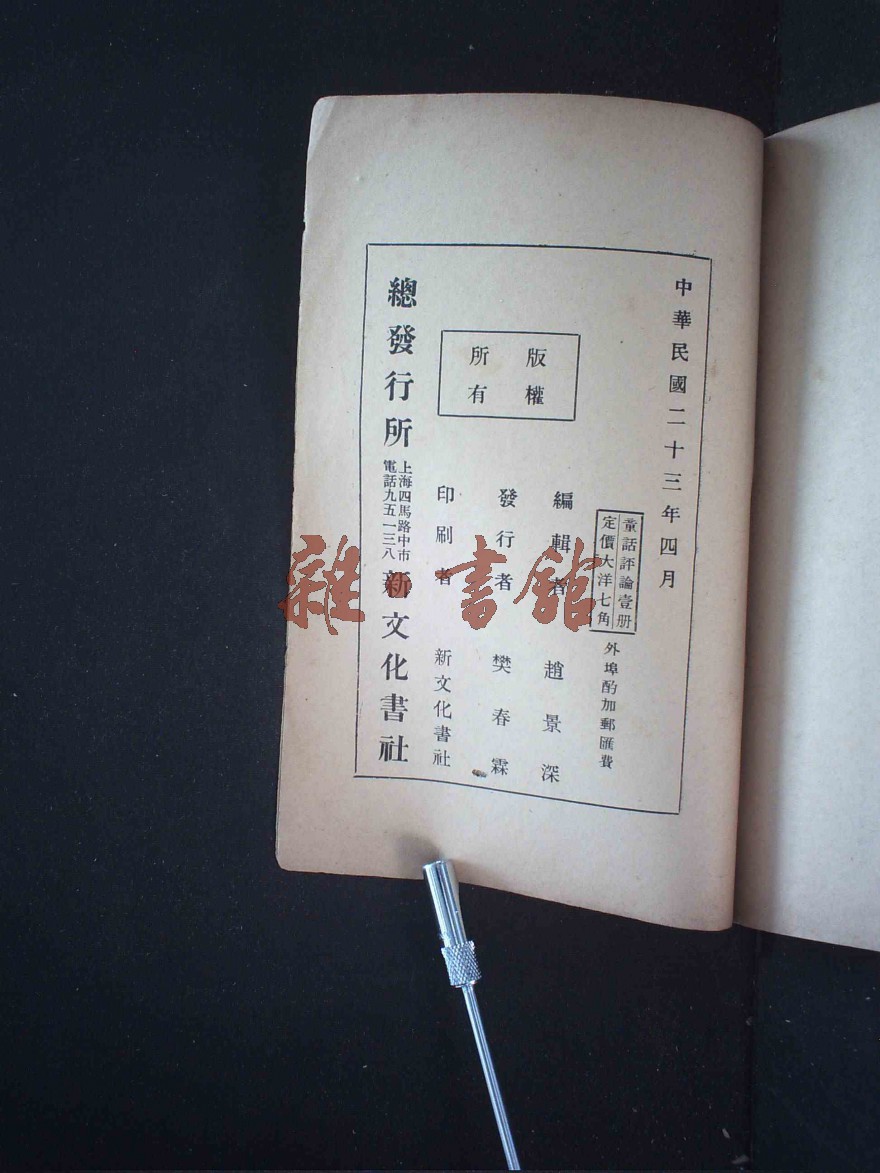 中華民國二十三年四月
童話評論壹册
定價大洋七角
外埠酌加郵匯費
版權
所有
編輯者 趙景深
發行者 樊春霖
印刷者 新文化書社
總發行所
上海四馬路中市
電話九五一三八
新文化書社
雜·書館